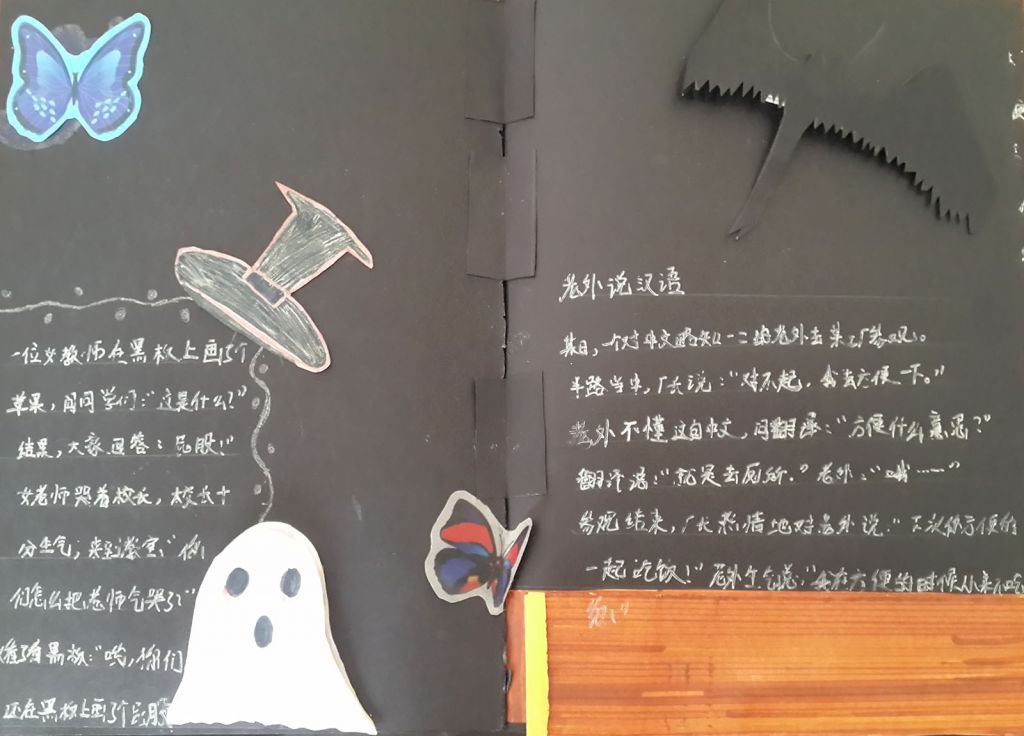 一位女教师在黑板上画了个
苹果，问同学们：“这是什么？”
结果，大家回答：屁股！”
女老师哭着校长，校长十
分生气，来到教室：“你
们怎么把老师气哭了？”
黑板：“哟，你们
还在黑板上画了个屁股
老外说汉语
某日，一个对中文略知一二的老外去某工厂参观。
半路当中，厂长说：“对不起，我去方便一下。”
老外不懂这句中文，问翻译：“方便什么意思？”
翻译说：“就是去厕所。”老外：“哦……”
参观结束，厂长热情地对老外说：“下次你方便的
一起吃饭！”老外生气说：“我在方便的时候从来不吃
饭！”